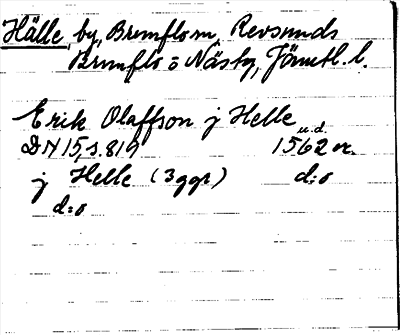 Hälle, by, Brunflo sn, Revsunds
Brunflo o Näsby, Jämtl. l.
Erik Olaffson j Helle
u.d.
DN 15, s. 819 1562 or.
j Helle (3 ggr) d:o
d:o